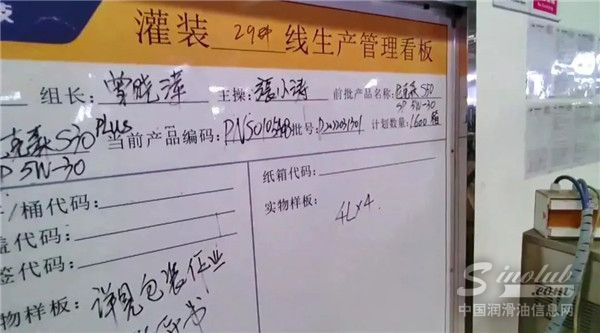 灌装 29# 线生产管理看板
组长: 曾晓萍 主操: 张小涛 前批产品名称: 克森S30
SP 5W-30
克森S30 PLUS 当前产品编码: 批号: P2022031301 计划数量: 1600箱
P 5W-30
/桶代码:
盖代码:
签代码:
物样板: 详见包装作业
纸箱代码:
实物样板: 4L×4
Sinolub
.com
中国润滑油信息网